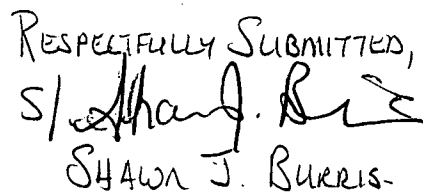 RESPECTFULLY SUBMITTED,
S/ Shawn J. Burris
SHAWN J. BURRIS